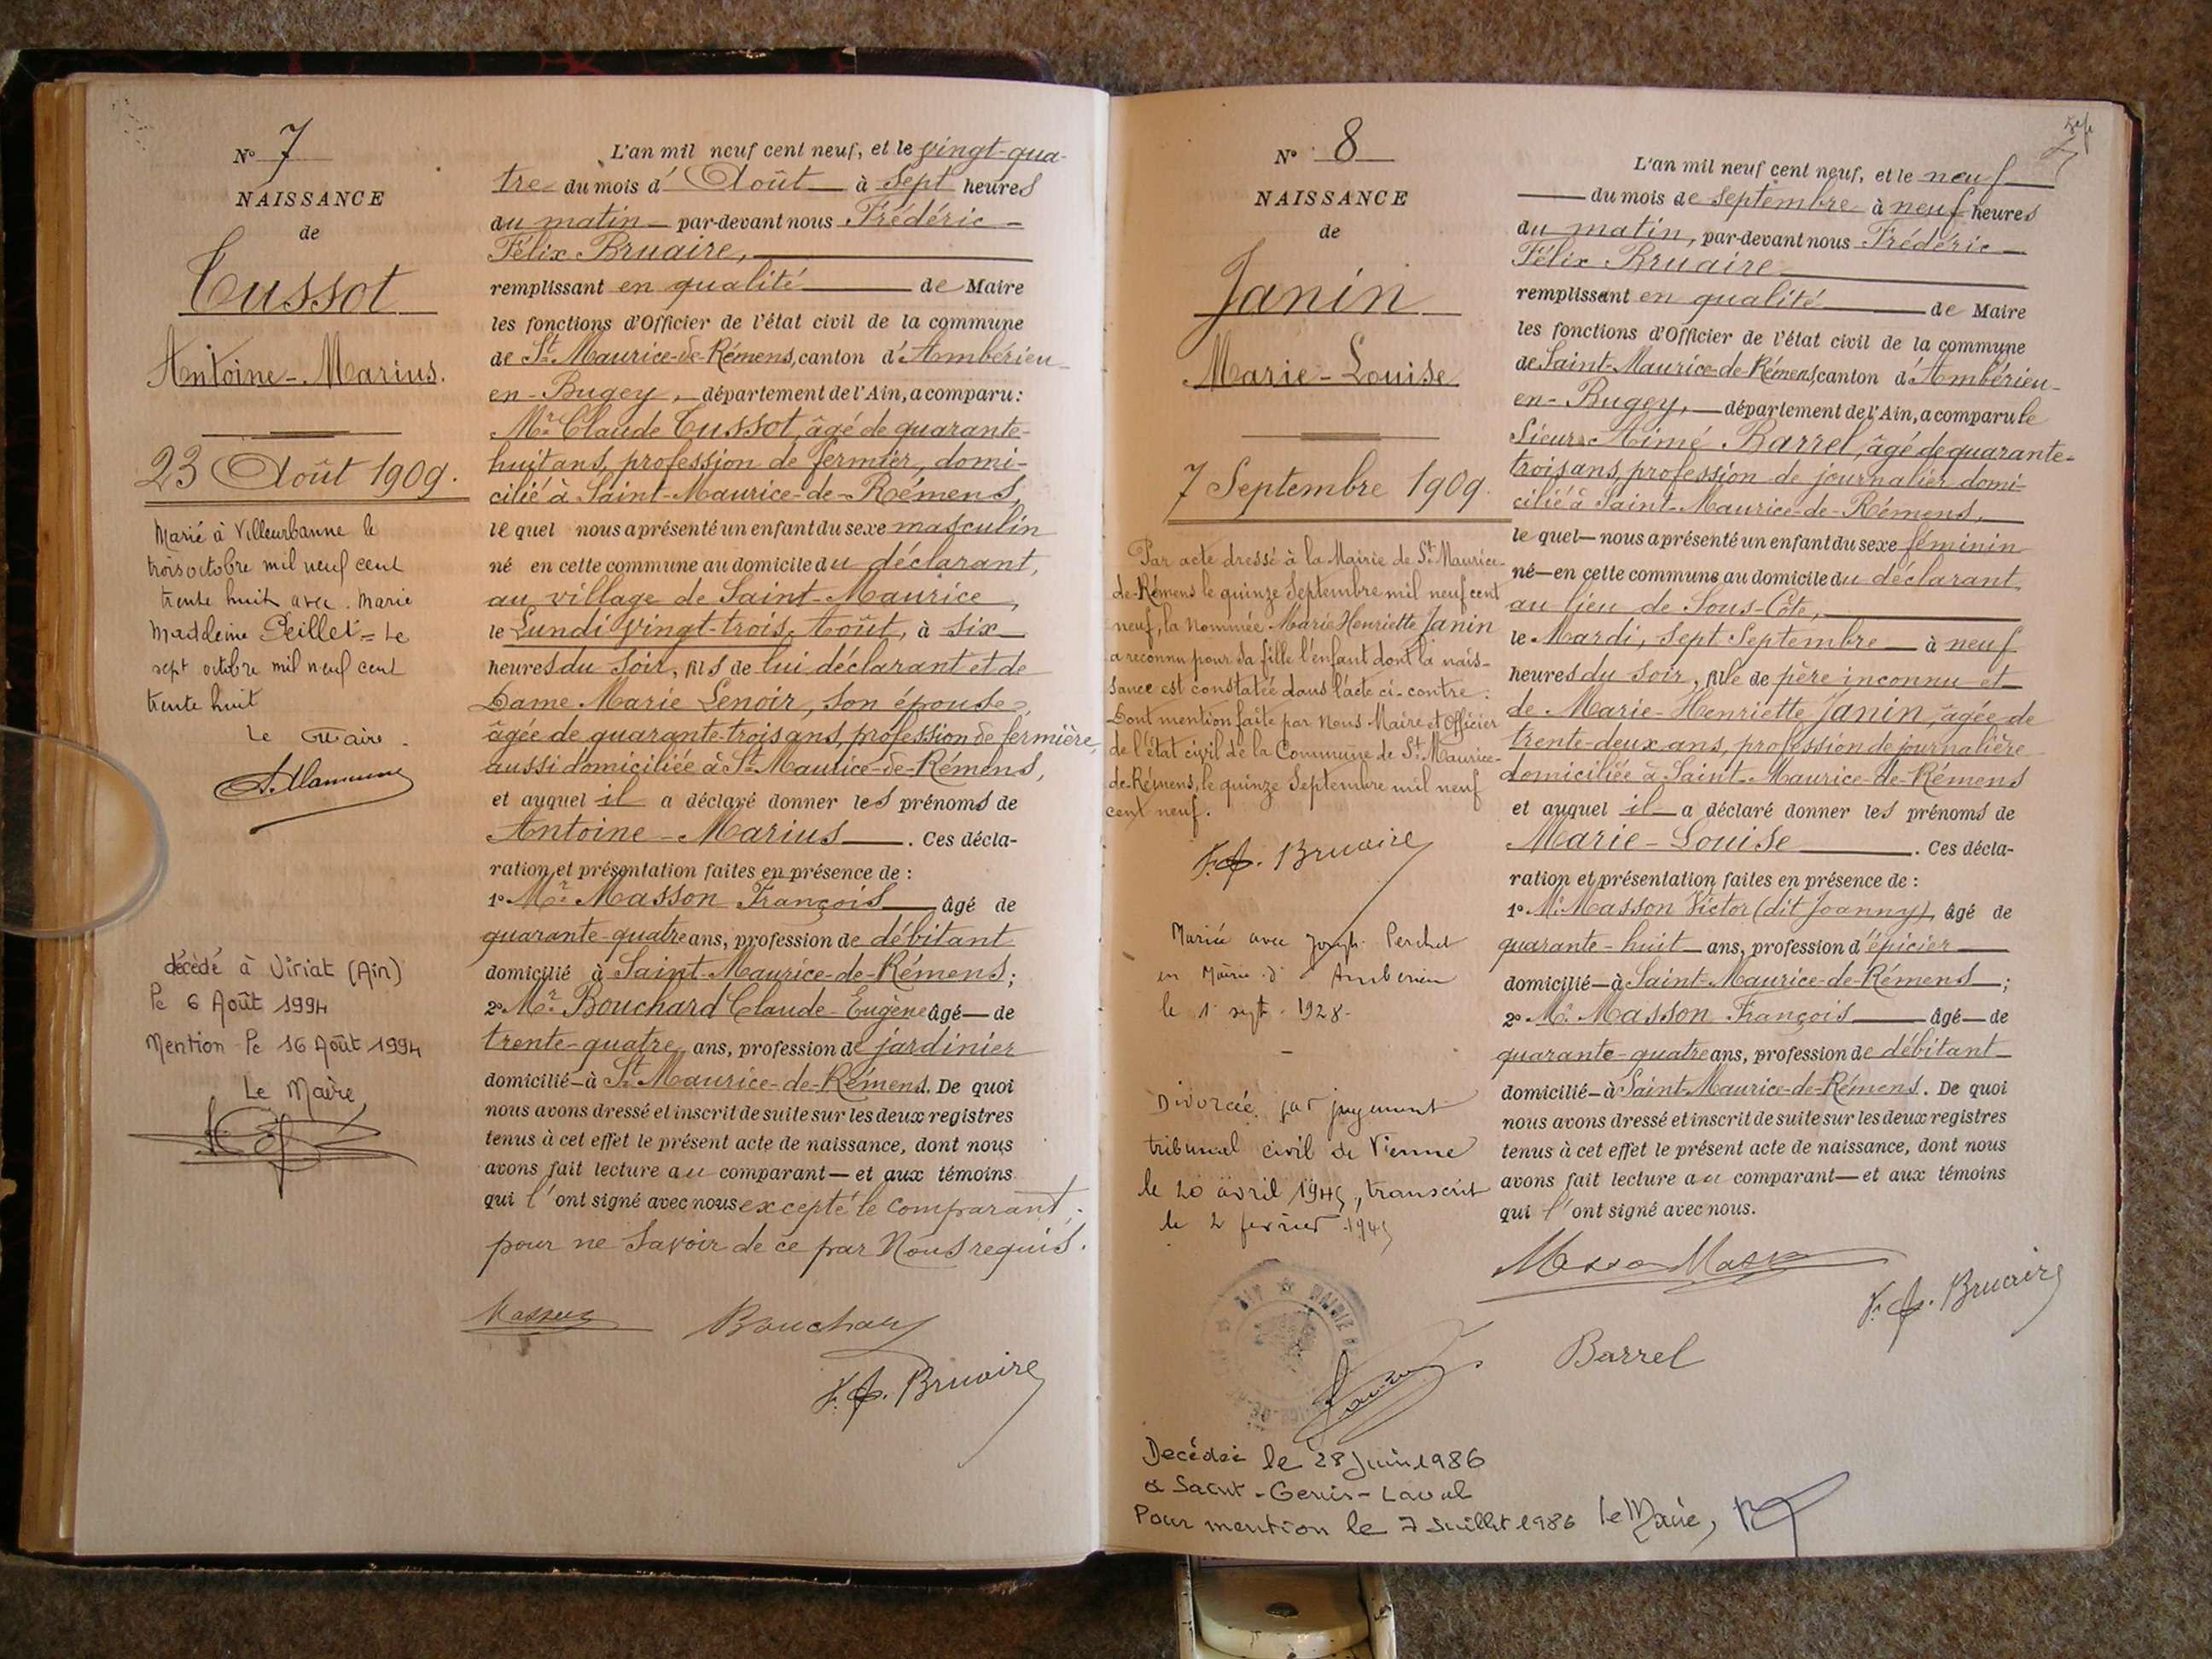 N° 7
NAISSANCE
de
Cussot
Antoine-Marius.
23 Août 1909.
Marié à Villeurbanne le
trois octobre mil neuf cent
trente huit avec Marie
Madeleine Peillet = Le
sept octobre mil neuf cent
trente huit
Le Maire.
décédé à Viriat (Ain)
le 6 Août 1994
Mention le 16 Août 1994
Le Maire,
L'an mil neuf cent neuf, et le vingt-qua-
tre du mois d'Août à sept heures
du matin par-devant nous Frédéric
Félix Bruaire,
remplissant en qualité de Maire
les fonctions d'Officier de l'état civil de la commune
de St Maurice-de-Rémens, canton d'Ambérieu-
en-Bugey, département de l'Ain, a comparu:
Mr Claude Cussot, âgé de quarante-
huit ans, profession de fermier, domi-
cilié à Saint-Maurice-de-Rémens,
le quel nous a présenté un enfant du sexe masculin
né en cette commune au domicile du déclarant,
au village de Saint-Maurice,
le Lundi vingt-trois Août, à six
heures du soir, fils de lui déclarant et de
Dame Marie Lenoir, son épouse,
âgée de quarante-trois ans, profession de fermière,
aussi domiciliée à St Maurice-de-Rémens,
et auquel il a déclaré donner les prénoms de
Antoine-Marius. Ces décla-
ration et présentation faites en présence de :
1° Mr Masson François âgé de
quarante-quatre ans, profession de débitant
domicilié à Saint-Maurice-de-Rémens;
2° Mr Bouchard Claude-Eugène âgé de
trente-quatre ans, profession de jardinier
domicilié à St Maurice-de-Rémens. De quoi
nous avons dressé et inscrit de suite sur les deux registres
tenus à cet effet le présent acte de naissance, dont nous
avons fait lecture au comparant et aux témoins
qui l'ont signé avec nous excepté le comparant,
pour ne savoir de ce par Nous requis.
Masson Bouchard
F. F. Bruaire
N° 8
NAISSANCE
de
Janin
Marie-Louise
7 Septembre 1909.
Par acte dressé à la Mairie de St Maurice-
de-Rémens le quinze Septembre mil neuf cent
neuf, la nommée Marie Henriette Janin
a reconnu pour sa fille l'enfant dont la nais-
sance est constatée dans l'acte ci-contre.
Dont mention faite par Nous Maire et Officier
de l'état civil de la Commune de St Maurice-
de-Rémens, le quinze Septembre mil neuf
cent neuf.
F. F. Bruaire
Mariée avec Joseph Perchet
en Mairie d'Ambérieu
le 1 sept. 1928.
Divorcée par jugement
tribunal civil de Vienne
le 20 avril 194, transcrit
le 2 février 194
MAIRIE
AIN
Decédée le 28 Juin 1986
à Saint-Genis-Laval
Pour mention le 7 Juillet 1986 le Maire,
L'an mil neuf cent neuf, et le neuf
du mois de septembre à neuf heures
du matin, par-devant nous Frédéric
Félix Bruaire
remplissant en qualité de Maire
les fonctions d'Officier de l'état civil de la commune
de Saint-Maurice-de-Rémens, canton d'Ambérieu-
en-Bugey, département de l'Ain, a comparu le
Sieur Aimé Barrel, âgé de quarante-
trois ans, profession de journalier domi-
cilié à Saint-Maurice-de-Rémens,
le quel nous a présenté un enfant du sexe féminin
né en cette commune au domicile du déclarant
au lieu de Sous-Côte,
le Mardi, sept Septembre à neuf
heures du soir, fille de père inconnu et
de Marie-Henriette Janin, âgée de
trente-deux ans, profession de journalière
domiciliée à Saint-Maurice-de-Rémens
et auquel il a déclaré donner les prénoms de
Marie-Louise. Ces décla-
ration et présentation faites en présence de :
1° Mr Masson Victor (dit Joanny), âgé de
quarante-huit ans, profession d'épicier
domicilié à Saint-Maurice-de-Rémens;
2° Mr Masson François âgé de
quarante-quatre ans, profession de débitant
domicilié à Saint-Maurice-de-Rémens. De quoi
nous avons dressé et inscrit de suite sur les deux registres
tenus à cet effet le présent acte de naissance, dont nous
avons fait lecture au comparant et aux témoins
qui l'ont signé avec nous.
Masson Masson
F. F. Bruaire
Barrel